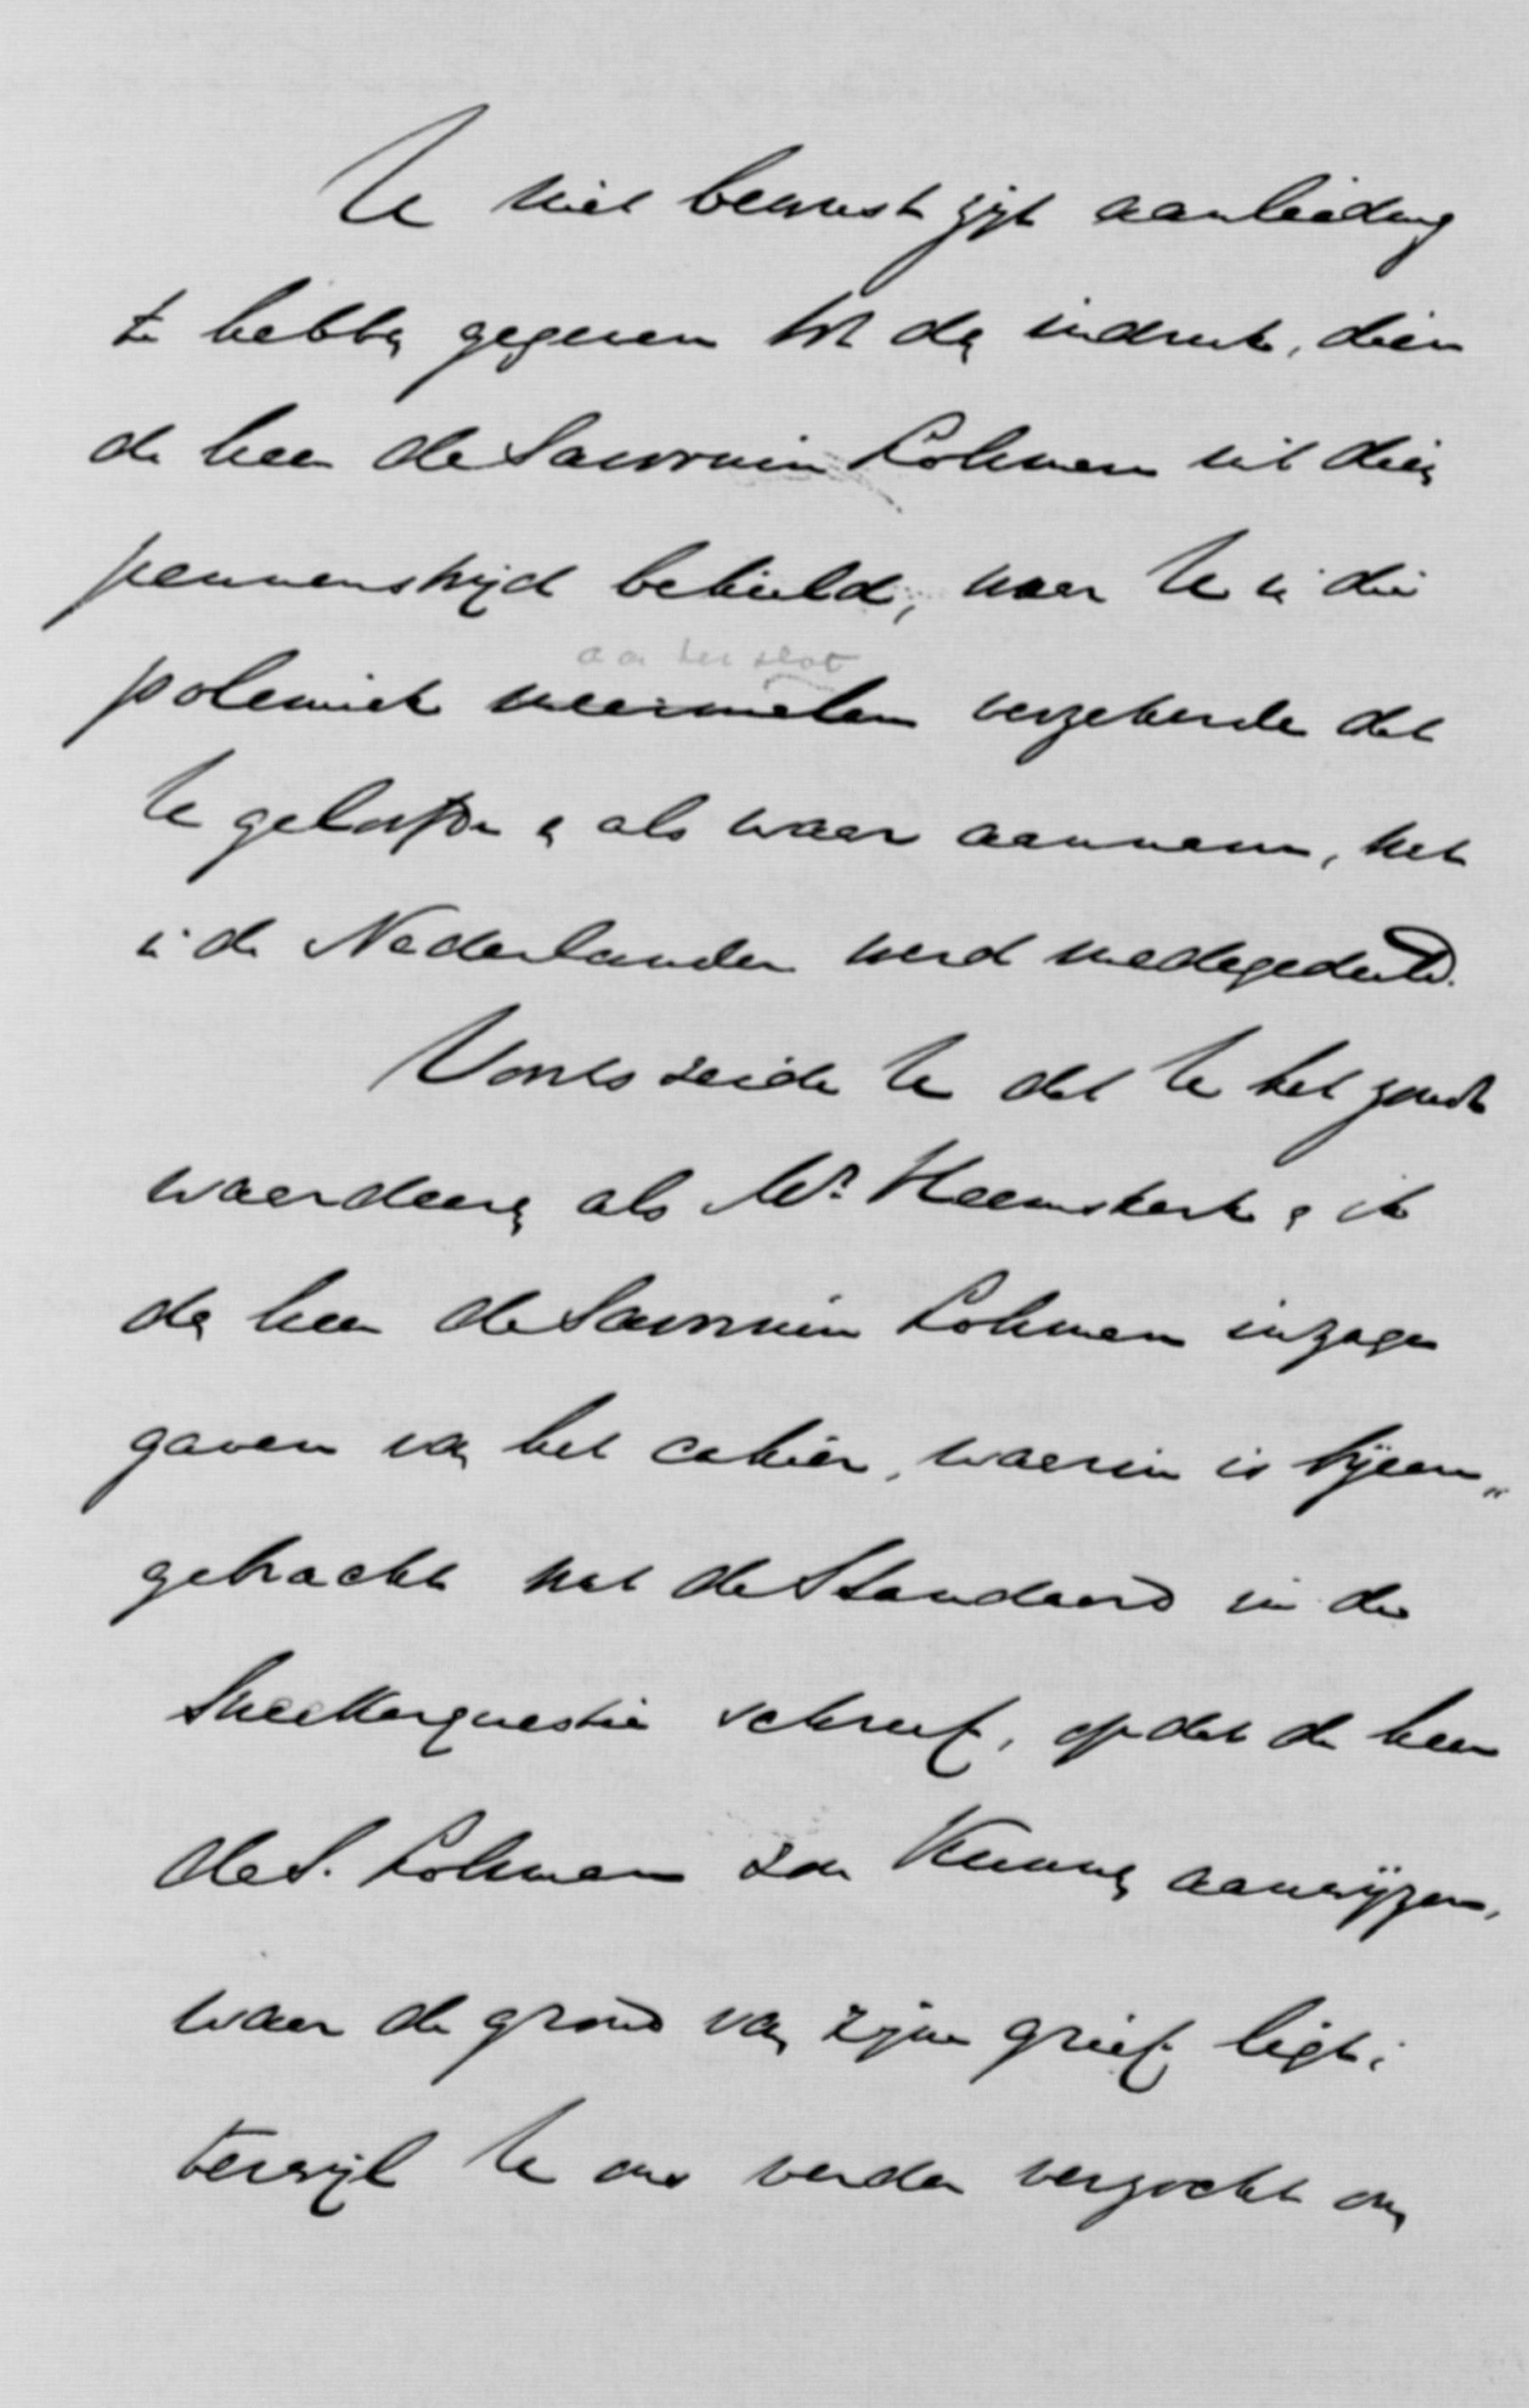 U niet bewust zijt aanleiding
te hebben gegeven tot den indruk, dien
de heer de Savornin Lohman uit dien
pennenstrijd behield, waar U in die
aan het slot
polemiek meermalen verzekerde dat
U geloofde en als waar aannam, het
in de Nederlander werd medegedeeld.
Voorts zeide U dat U het zoudt
waardeeren als Mr. Heemskerk en ik
den heer de Savornin Lohman inzage
gaven van het cahier, waarin is bijeen„
gebracht wat de Standaard in de
Sneekerquestie schreef, opdat de heer
de S. Lohman zou kunnen aanwijzen,
waar de grond van zijne grief ligt;
terwijl U ons verder verzocht om